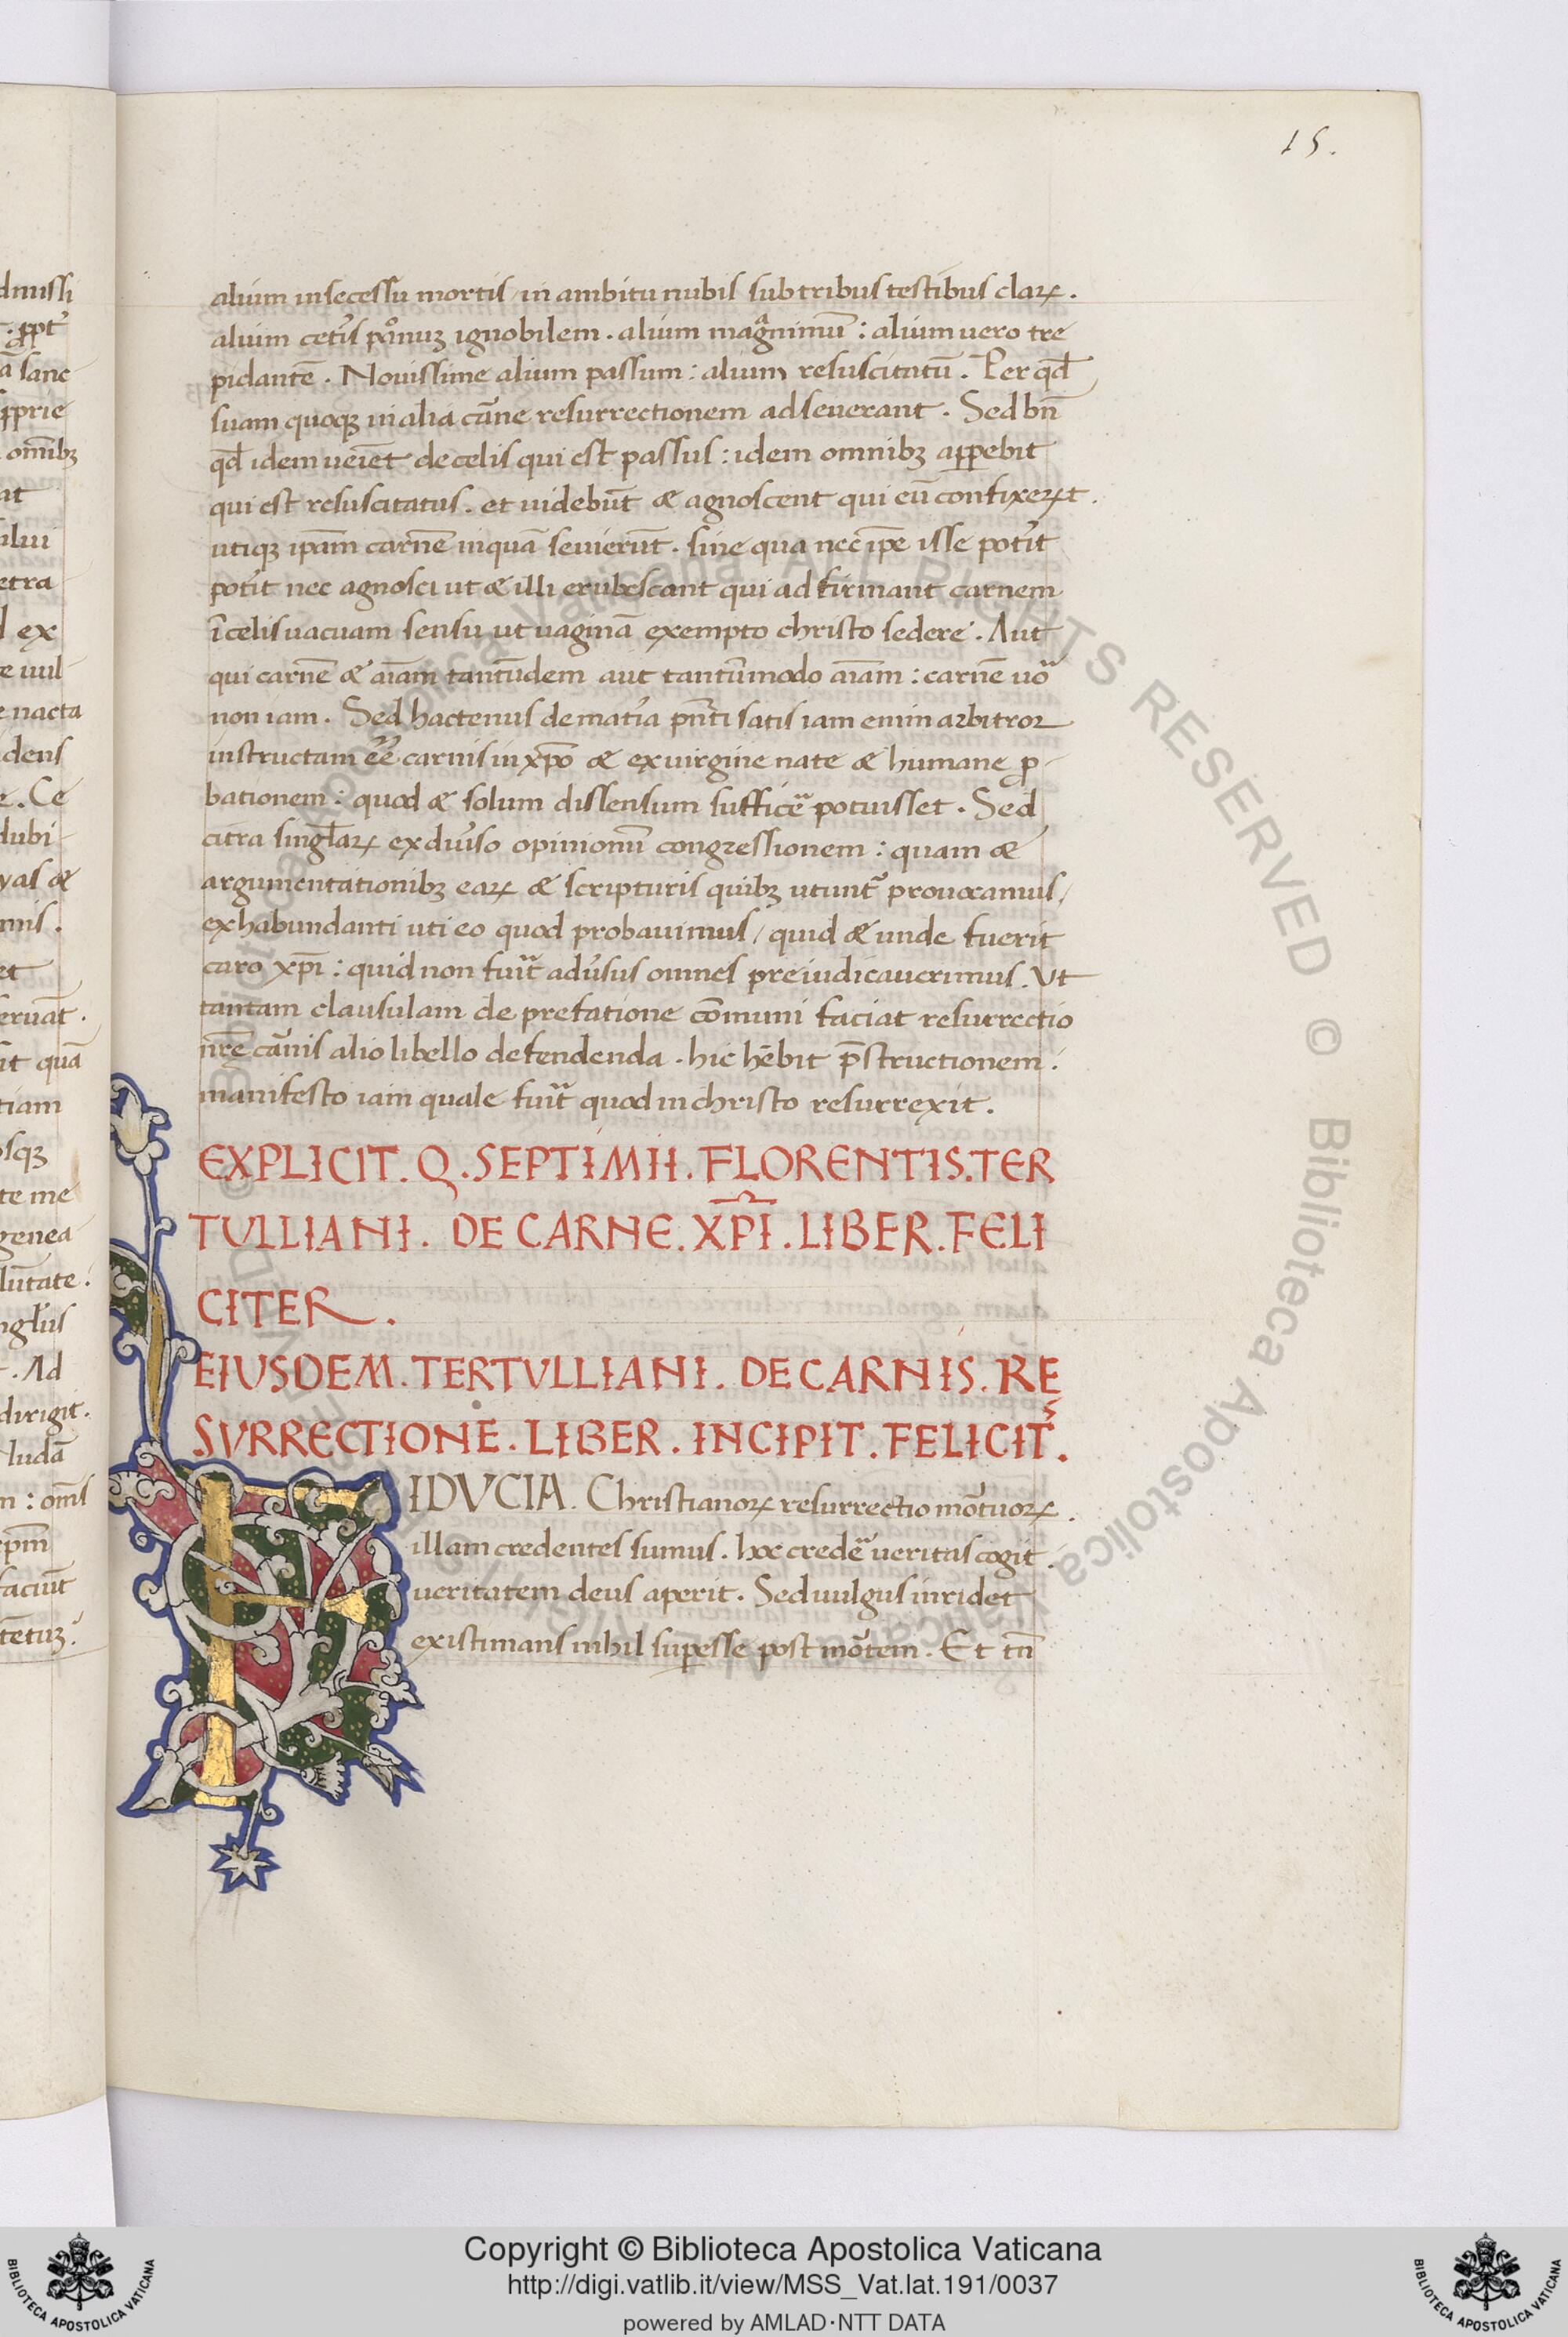 15.
alium in secessu mortis / in ambitu nubis sub tribus testibus claꝝ.
alium cetis ꝑoīnuꝫ ignobilem. alium magͣnimū: alium uero tre
pidantē. Nouissime alium passum: alium resuscitatū. Per qđ
suam quoqꝫ in alia caͬne resurrectionem adseuerant. Sed bn̄
qđ idem ueiēt de celis qui est passus: idem omnibꝫ apꝑebit
qui est resuscitatus. et uidebūt & agnoscent qui eū confixeꝝt.
utiqꝫ ipam̄ carnē in quā seuierūt. sine qua nec ip̄e isse potit̄
potit̄ nec agnosci ut & illi erubescant qui adfirmant carnem
ī celis uacuam sensu ut uaginā exempto christo sedere. Aut
qui carnē & aīam tantūdem aut tantūmodo aīam: carnē uoᷓ
non iam. Sed hactenus de mat̄ia pn̄ti satis iam enim arbitror
instructam eē carnis in xp̄o & ex uirgine nate & humane ꝓ-
bationem: quod & solum dissensum sufficē potuisset. Sed
citra singłaꝝ ex diūso opinionū congressionem: quam &
argumentationibꝫ eaꝝ & scripturis quibꝫ utunt᷑ prouocamus /
ex habundanti uti eo quod probauimus / quid & unde fuerit
caro xp̄i: quid non fuitᷓ adūsus omnes preiudicauerimus. Ut
tantam clausulam de prefatione cōmuni faciat resurrectio
nrē caͬnis alio libello defendenda. hic hēbit p̄structionem:
manifesto iam quale fuitᷓ quod in christo resurrexit.
EXPLICIT. Q. SEPTIMII. FLORENTIS. TER
TULLIANI. DE CARNE. XP̄I. LIBER. FELI
CITER.
EIUSDEM. TERTVLLIANI. DE CARNIS. RE
SVRRECTIONE. LIBER. INCIPIT. FELICIT᷑.
FIDVCIA. Christianoꝝ resurrectio moͬtuoꝝ.
illam credentes sumus. hoc credē ueritas cogit.
ueritatem deus aperit. Sed uulgus inridet
existimans nihil suꝑesse post moͬtem. Et tn̄
Copyright © Biblioteca Apostolica Vaticana
http://digi.vatlib.it/view/MSS_Vat.lat.191/0037
powered by AMLAD·NTT DATA
BIBLIOTECA APOSTOLICA VATICANA
BIBLIOTECA APOSTOLICA VATICANA